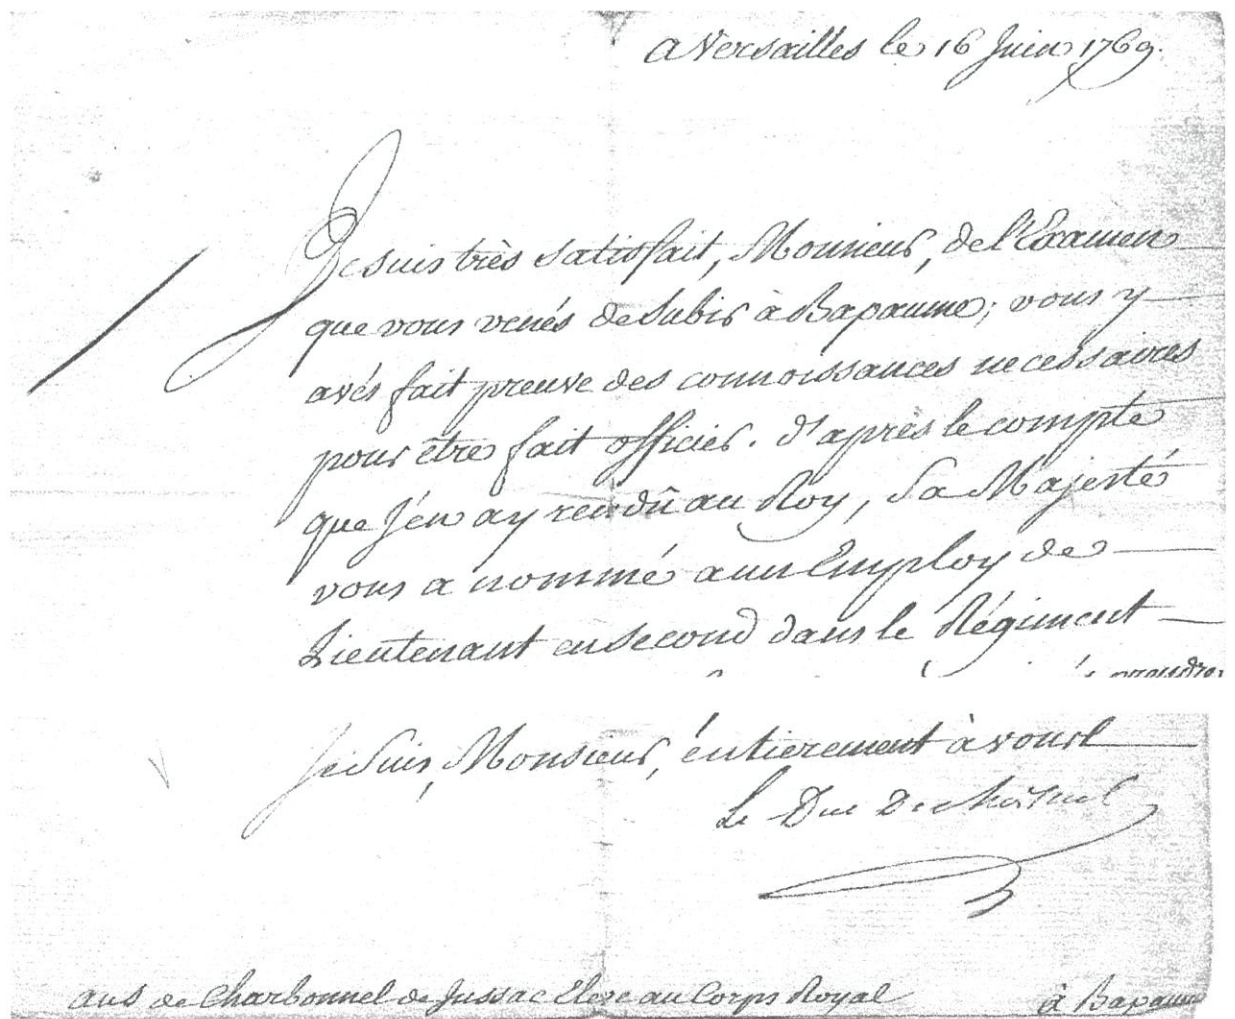 a Versailles le 16 Juin 1769.
Je suis très satisfait, Monsieur, de l'Examen
que vous venés de subir à Bapaume; vous y
avés fait preuve des connoissances necessaires
pour être fait officier. d'après le compte
que j'en ay rendû au Roy, Sa Majesté
vous a nommé a un Employ de
Lieutenant en second dans le Régiment
prendre
Je suis, Monsieur, éntierement à vous
Le Duc De Choiseul
de Charbonnel de Jussac Eleve au Corps Royal
à Bapaume